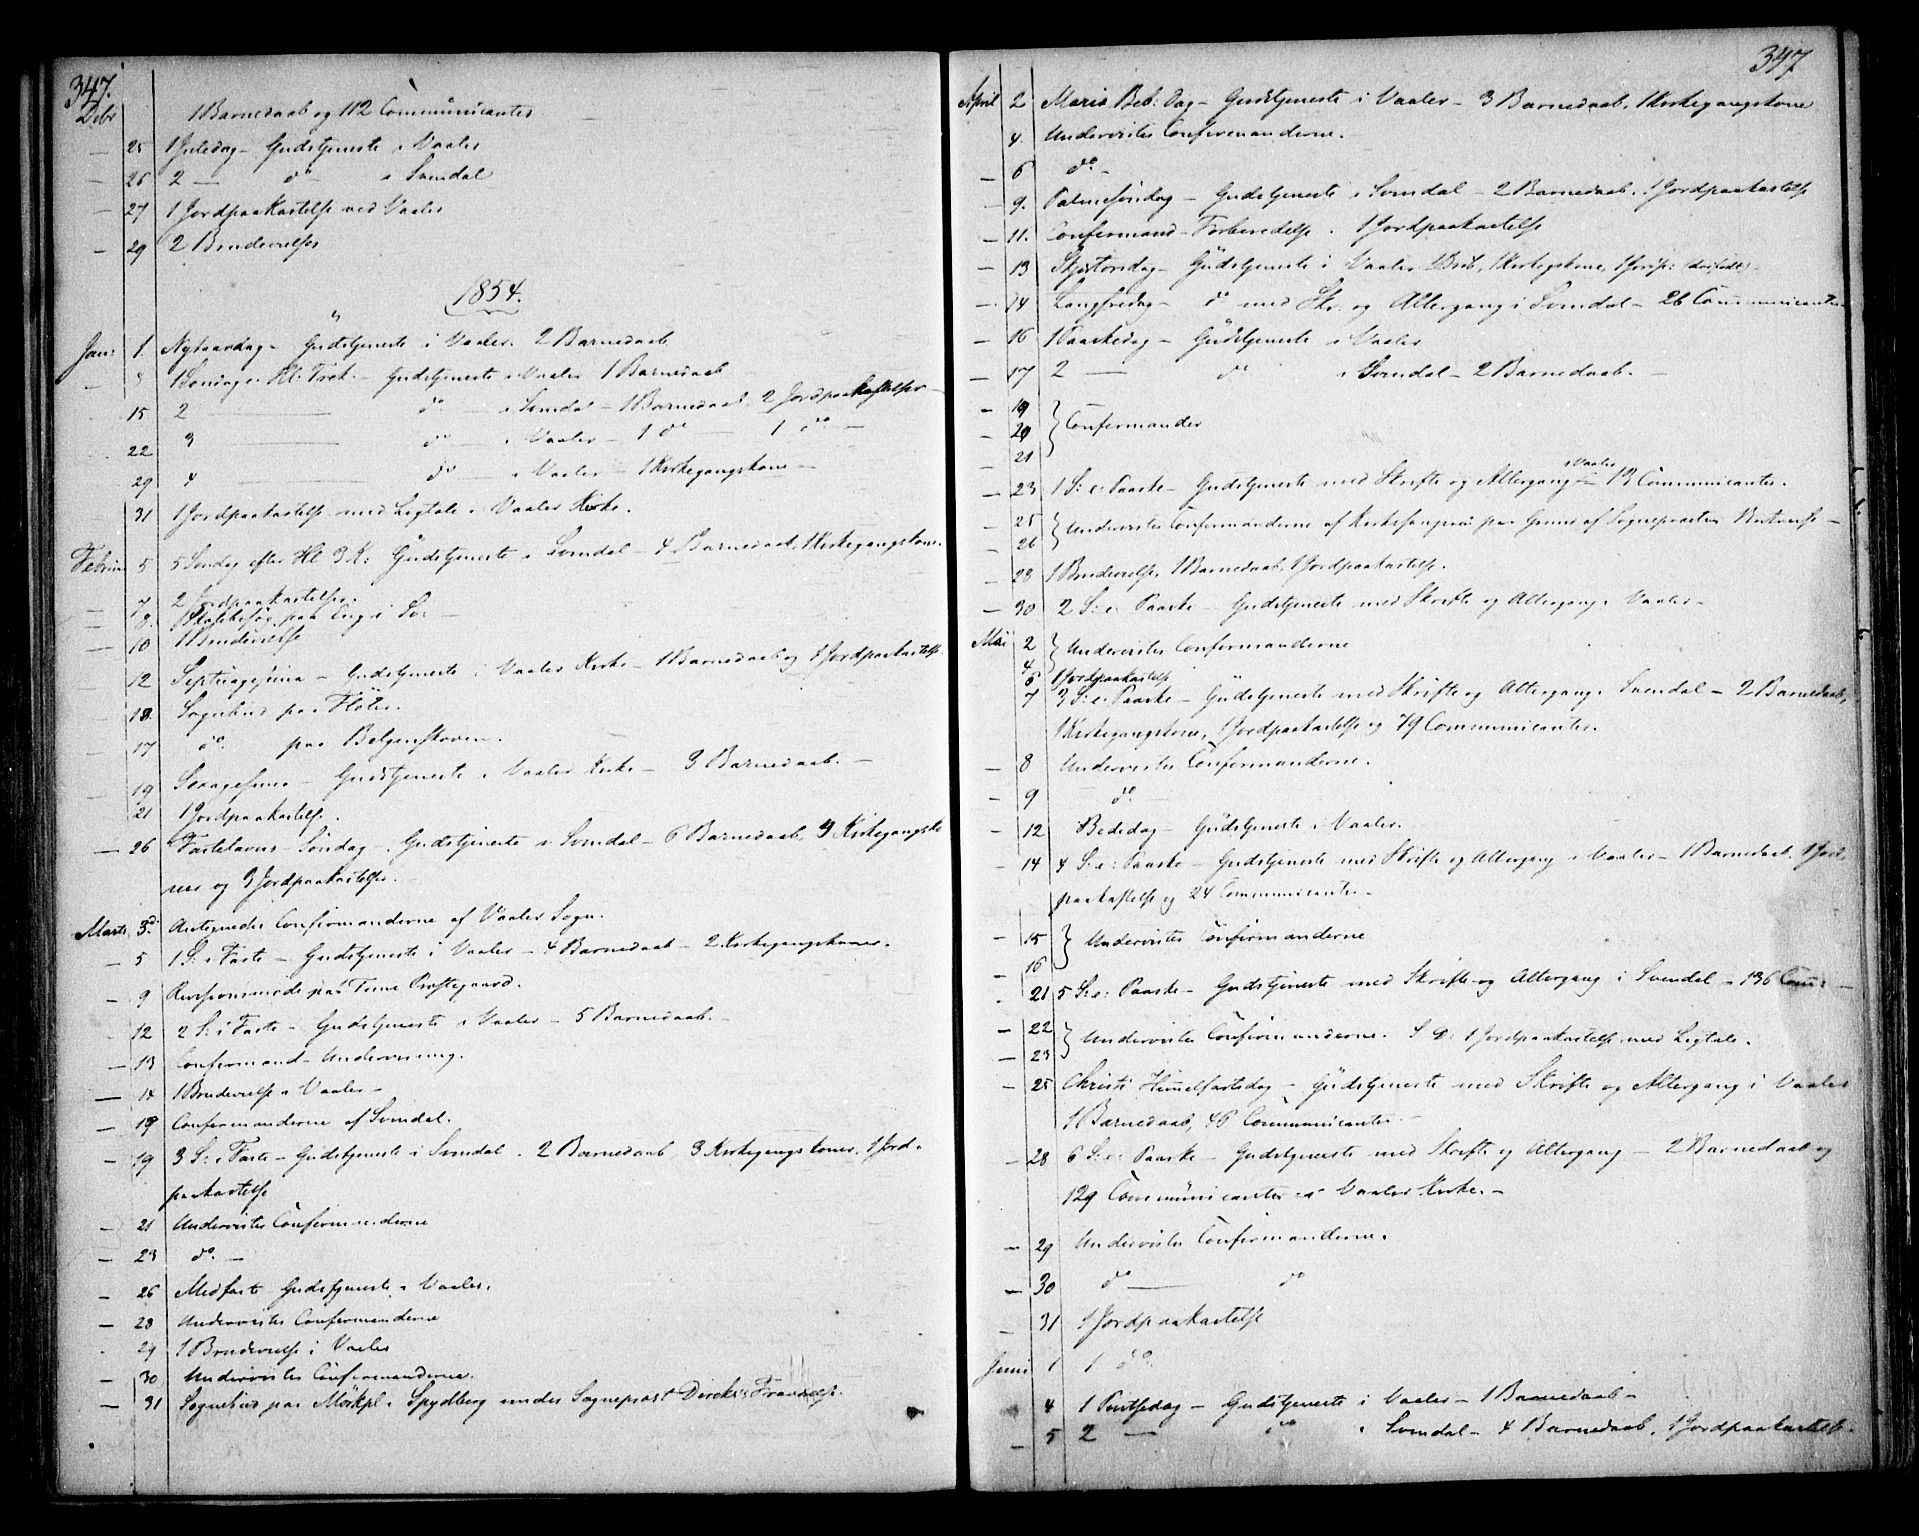 347.
Debr
1 Barnedaab og 112 Communicantes
— 25 1 Juledag – Gudstjeneste i Vaaler
— 26 2 — do i Svendal
— 27 1 Jordpaakastelse ved Vaaler
— 29 2 Brudevielser
1854.
Jan: 1. Nytaarsdag – Gudstjeneste i Vaaler. 2 Barnedaab
1 Søndag e. Hl. Trek. – Gudstjeneste i Vaaler 1 Barnedaab
15 2 — do — i Svendal – 1 Barnedaab, 2 Jordpaakastelser
22 3 — do — i Vaaler – 1 do — 1 do —
29 4 — do — i Vaaler – 1 Kirkegangskone –
31 1 Jordpaakastelse med Ligtale i Vaaler Kirke.
Februar 5 5 Søndag efter Hl. 3 K: Gudstjeneste i Svendal – 4 Barnedaab, 1 Kirkegangskone
— 7 2 Jordpaakastelser.
— 8. paa Eng i Sv: —
— 10 1 Brudevielse
— 12 Septuagesima – Gudstjeneste i Vaaler Kirke – 1 Barnedaab og 1 Jordpaakastelse
— 13. Sognebud paa Flöter.
— 17 do. paa Belgenskoven.
— 19 Sexagesima – Gudstjeneste i Vaaler Kirke – 3 Barnedaab. —
21 1 Jordpaakastelse.
— 26 Fastelavns Søndag – Gudstjeneste i Svendal – 6 Barnedaab, 3 Kirkegangsko
ner og 3 Jordpaakastelser. —
Marts 3d. Antegnedes Confirmanderne af Vaaler Sogn.
— 5 1 S: i Faste – Gudstjeneste i Vaaler – 4 Barnedaab – 2 Kirkegangskoner.
— 9 paa Præstegaard.
— 12 2 S: i Faste – Gudstjeneste i Vaaler – 5 Barnedaab. —
— 13 Confirmand-Undervisning.
— 14 1 Brudevielse i Vaaler –
— 19 Confirmanderne af Svendal.
— 19 3 S: i Faste – Gudstjeneste i Svendal – 2 Barnedaab, 3 Kirkegangskoner, 1 Jord-
paakastelse
— 21 Undervistes Confirmanderne
— 23 do. —
— 26 Midfaste Gudstjeneste i Vaaler.
— 28 Undervistes Confirmanderne
29 1 Brudevielse i Vaaler
— 30 Undervistes Confirmanderne.
— 31 Sognebud paa i Spydberg under Sogneprest Fraværelse.
347
April 2 Mariæ Beb: Dag – Gudstjeneste i Vaaler – 3 Barnedaab, 1 Kirkegangskone
4. Undervistes Confirmanderne.
— 6 do. –
— 9. Palmesøndag – Gudstjeneste i Svendal – 2 Barnedaab, 1 Jordpaakastelse
— 11. Confirmand-Forberedelse. 1 Jordpaakastelse
— 13 Skjertorsdag – Gudstjeneste i Vaaler 1 Kirkegskone, 1 Jordp: (dødfødt) –
— 14 Langfredag – do med Skr. og Altergang i Svendal – 26 Communicanter
— 16 1 Paaskedag – Gudstjeneste i Vaaler
— 17 2 — do i Svendal – 2 Barnedaab. —
— 19
— 20 Confirmander
— 21
— 23 1 S: e: Paaske – Gudstjeneste med Skrifte og Altergang i Vaaler – 13 Communicanter.
— 25 Undervistes Confirmanderne af Kirkesangeren paa Grund af Sognepræstens –
— 26
— 28 1 Brudevielse, 1 Barnedaab, 1 Jordpaakastelse.
— 30 2 S: e: Paaske – Gudstjeneste med Skrifte og Altergang i Vaaler –
Mai 2 Undervistes Confirmanderne
4
6 1 Jordpaakastelse
7 3 S: e: Paaske – Gudstjeneste med Skrifte og Altergang i Svendal – 2 Barnedaab,
1 Kirkegangskone, 1 Jordpaakastelse og 79 Communicanter.
— 8 Undervistes Confirmanderne.
— 9 do. —
— 12 Bededag – Gudstjeneste i Vaaler.
— 14 4 S: e: Paaske – Gudstjeneste med Skrifte og Altergang i Vaaler – 1 Barnedaab, 1 Jord-
paakastelse og 24 Communicanter –
— 15 Undervistes Confirmanderne
— 16
21 5 S: e: Paaske – Gudstjeneste med Skrifte og Altergang i Svendal – 136 Com: —
— 22 Undervistes Confirmanderne. S D: 1 Jordpaakastelse med Ligtale.
— 23
— 25 Christi Himmelfartsdag – Gudstjeneste med Skrifte og Altergang i Vaaler
1 Barnedaab, 46 Communicanter –
— 28 6 S: e: Paaske – Gudstjeneste med Skrifte og Altergang – 2 Barnedaab og
129 Communicanter i Vaaler Kirke. –
— 29 Undervistes Confirmanderne.
— 30 do — do
— 31 1 Jordpaakastelse
Juni 1 1 do.
4 1 Pintsedag – Gudstjeneste i Vaaler – 1 Barnedaab –
— 5 2 — do i Svendal – 4 Barnedaab, 1 Jordpaakastelse.